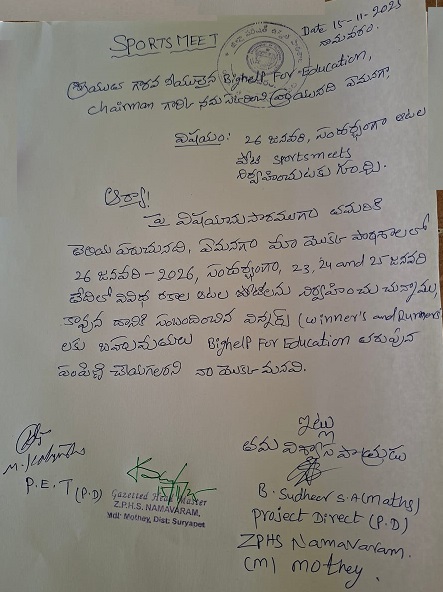 SPORTS MEET
Date 15-11-2025
నామవరం.
గౌరవనీయులైన Bighelp For Education,
Chairman గారికి నమస్కరించి వ్రాయునది ఏమనగా,
విషయం: 26 జనవరి, సందర్భంగా ఆటల
పోటీ sportsmeets
నిర్వహించుటకు గురించి.
ఆర్యా!
పై విషయానుసారముగా తమరికి
తెలియ పరుచునది, ఏమనగా మా యొక్క పాఠశాలలో
26 జనవరి - 2026, సందర్భంగా, 23, 24 and 25 జనవరి
తేదిలో వివిధ రకాల ఆటల పోటీలను నిర్వహించుచున్నాము,
కావున దానికి సంబందించిన విన్నర్స్ (winner's and Runners)
లకు బహుమతులు Bighelp For Education తరుపున
పంపిణి చేయగలరని నా యొక్క మనవి.
ఇట్లు
తమ విశ్వాసపాత్రుడు
P.E.T (P.D)
Gazetted Head Master
Z.P.H.S. NAMAVARAM,
Mdl: Mothey, Dist: Suryapet
B. Sudheer S.A (maths)
project Direct (P.D)
ZPHS Namavaram.
(M) mothey.